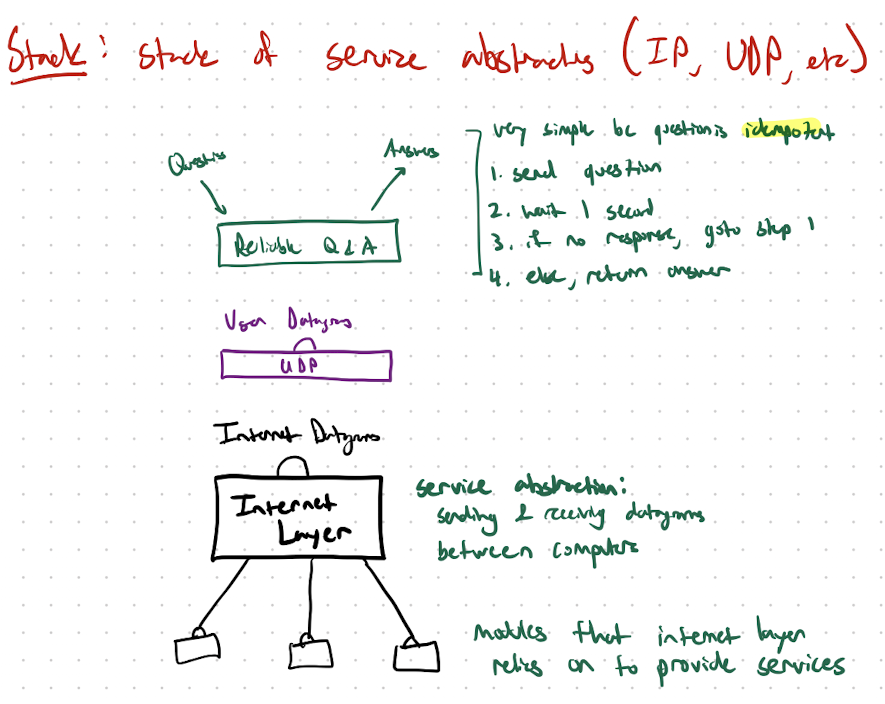 Stack: stack of service abstractions (IP, UDP, etc)
very simple bc question is idempotent
Questions
Answers
1. send question
2. wait 1 second
3. if no response, goto step 1
4. else, return answer
Reliable Q & A
User Datagrams
UDP
Internet Datagrams
Internet
Layer
service abstraction:
sending & receiving datagrams
between computers
modules that internet layer
relies on to provide services